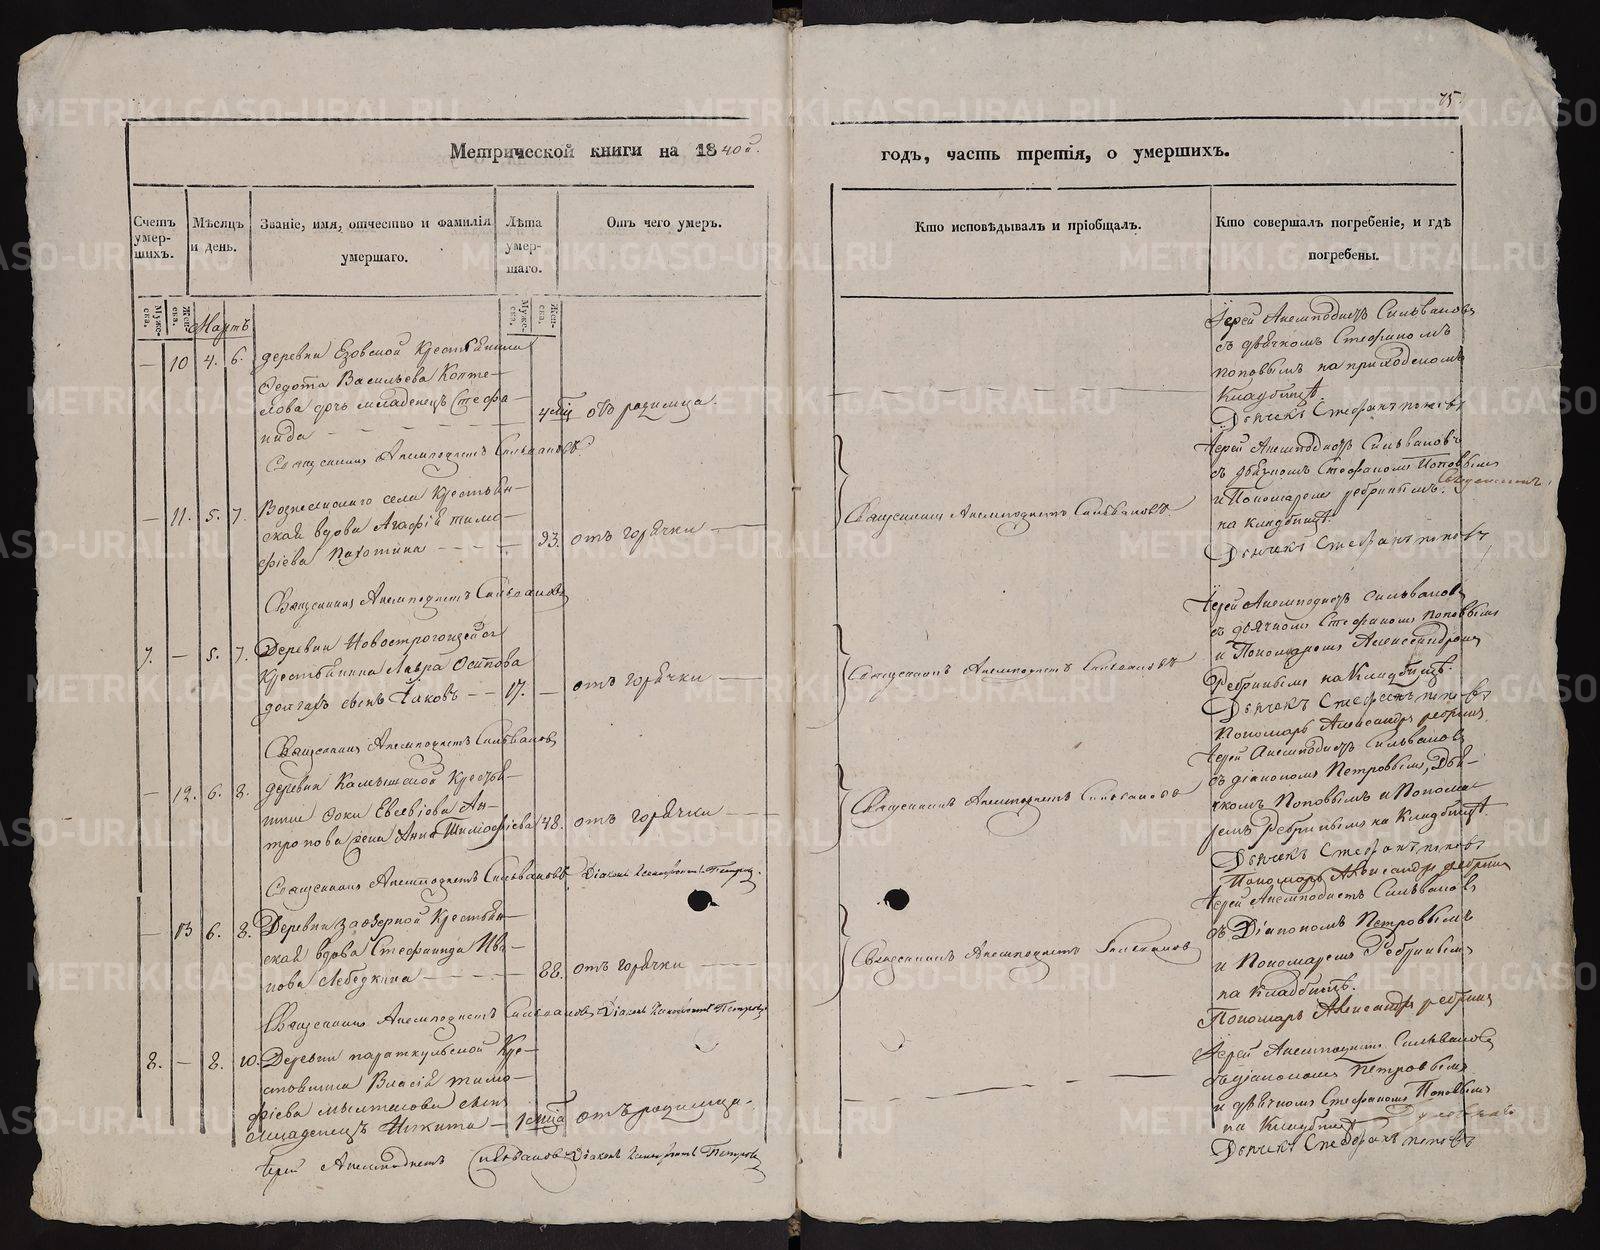 75.
Метрической книги на 1840й.
годъ, часть третія, о умершихъ.
Счетъ умер-шихъ.
Мѣсяцъ и день.
Званіе, имя, отчество и фамилія умершаго.
Лѣта умер-шаго.
Отъ чего умеръ.
Кто исповѣдывалъ и пріобщалъ.
Кто совершалъ погребеніе, и гдѣ погребены.
Муже-ска.
Жен-ска.
Муже-ска.
Жен-ска.
Мартъ
— 10 4. 6. деревни Езовской крестьянина
Ѳедота Васильева Копте-
лова дочь младенецъ Стефа-
нида
отъ родимца.
Священникъ Анемподистъ Сильвановъ
Іерей Анемподистъ Сильвановъ
съ дьячкомъ Стефаномъ
Поповымъ на приходскомъ
Кладбищѣ.
Дьячекъ Стефанъ Поповъ
— 11. 5. 7. Вознесенскаго села крестьян-
ская вдова Агафія Тимо-
фіева Пахотина — 93. отъ горячки
Священникъ Анемподистъ Сильвановъ
Священникъ Анемподистъ Сильвановъ
Іерей Анемподистъ Сильвановъ
съ дьячкомъ Стефаномъ Поповымъ
и Пономаремъ Ребринымъ.
на кладбищѣ.
Дьячекъ Стефанъ Поповъ
7. — 5. 7. Деревни Новострогонской
крестьянина Лавра Осипова
сынъ Іаковъ — 17. — отъ горячки
Священникъ Анемподистъ Сильвановъ
Священникъ Анемподистъ Сильвановъ
Іерей Анемподистъ Сильвановъ
съ дьячкомъ Стефаномъ Поповымъ
и Пономаремъ Александромъ
Ребринымъ на Кладбищѣ.
Дьячекъ Стефанъ Поповъ
Пономарь Александръ Ребринъ
— 12. 6. 8. деревни Камышской крестья-
нина Фоки Евсевіева Ан-
тропова жена Анна Тимофіева 48. отъ горячки
Священникъ Анемподистъ Сильвановъ. Діаконъ Петровъ.
Священникъ Анемподистъ Сильвановъ
Іерей Анемподистъ Сильвановъ
съ діакономъ Петровымъ, Дья-
чкомъ Поповымъ и Понома-
ремъ Ребринымъ на Кладбищѣ.
Дьячекъ Стефанъ Поповъ
Пономарь Александръ Ребринъ
— 13 6. 8. Деревни Заозерной крестьян-
ская вдова Стефанида Ива-
нова Лебедкина — 88. отъ горячки
Священникъ Анемподистъ Сильвановъ Діаконъ Петровъ
Священникъ Анемподистъ Сильвановъ
Іерей Анемподистъ Сильвановъ
съ Діакономъ Петровымъ
и Пономаремъ Ребринымъ
на Кладбищѣ.
Пономарь Александръ Ребринъ
8. — 8. 10. Деревни Параткульской Кре-
стьянина Власія Тимо-
фіева сынъ
младенецъ Никита — отъ родимца.
Іерей Анемподистъ Сильвановъ Діаконъ Петровъ
Іерей Анемподистъ Сильвановъ
съ діакономъ Петровымъ
и дьячкомъ Стефаномъ Поповымъ
на Кладбищѣ
Дьячекъ Стефанъ Поповъ
METRIKI.GASO-URAL.RU